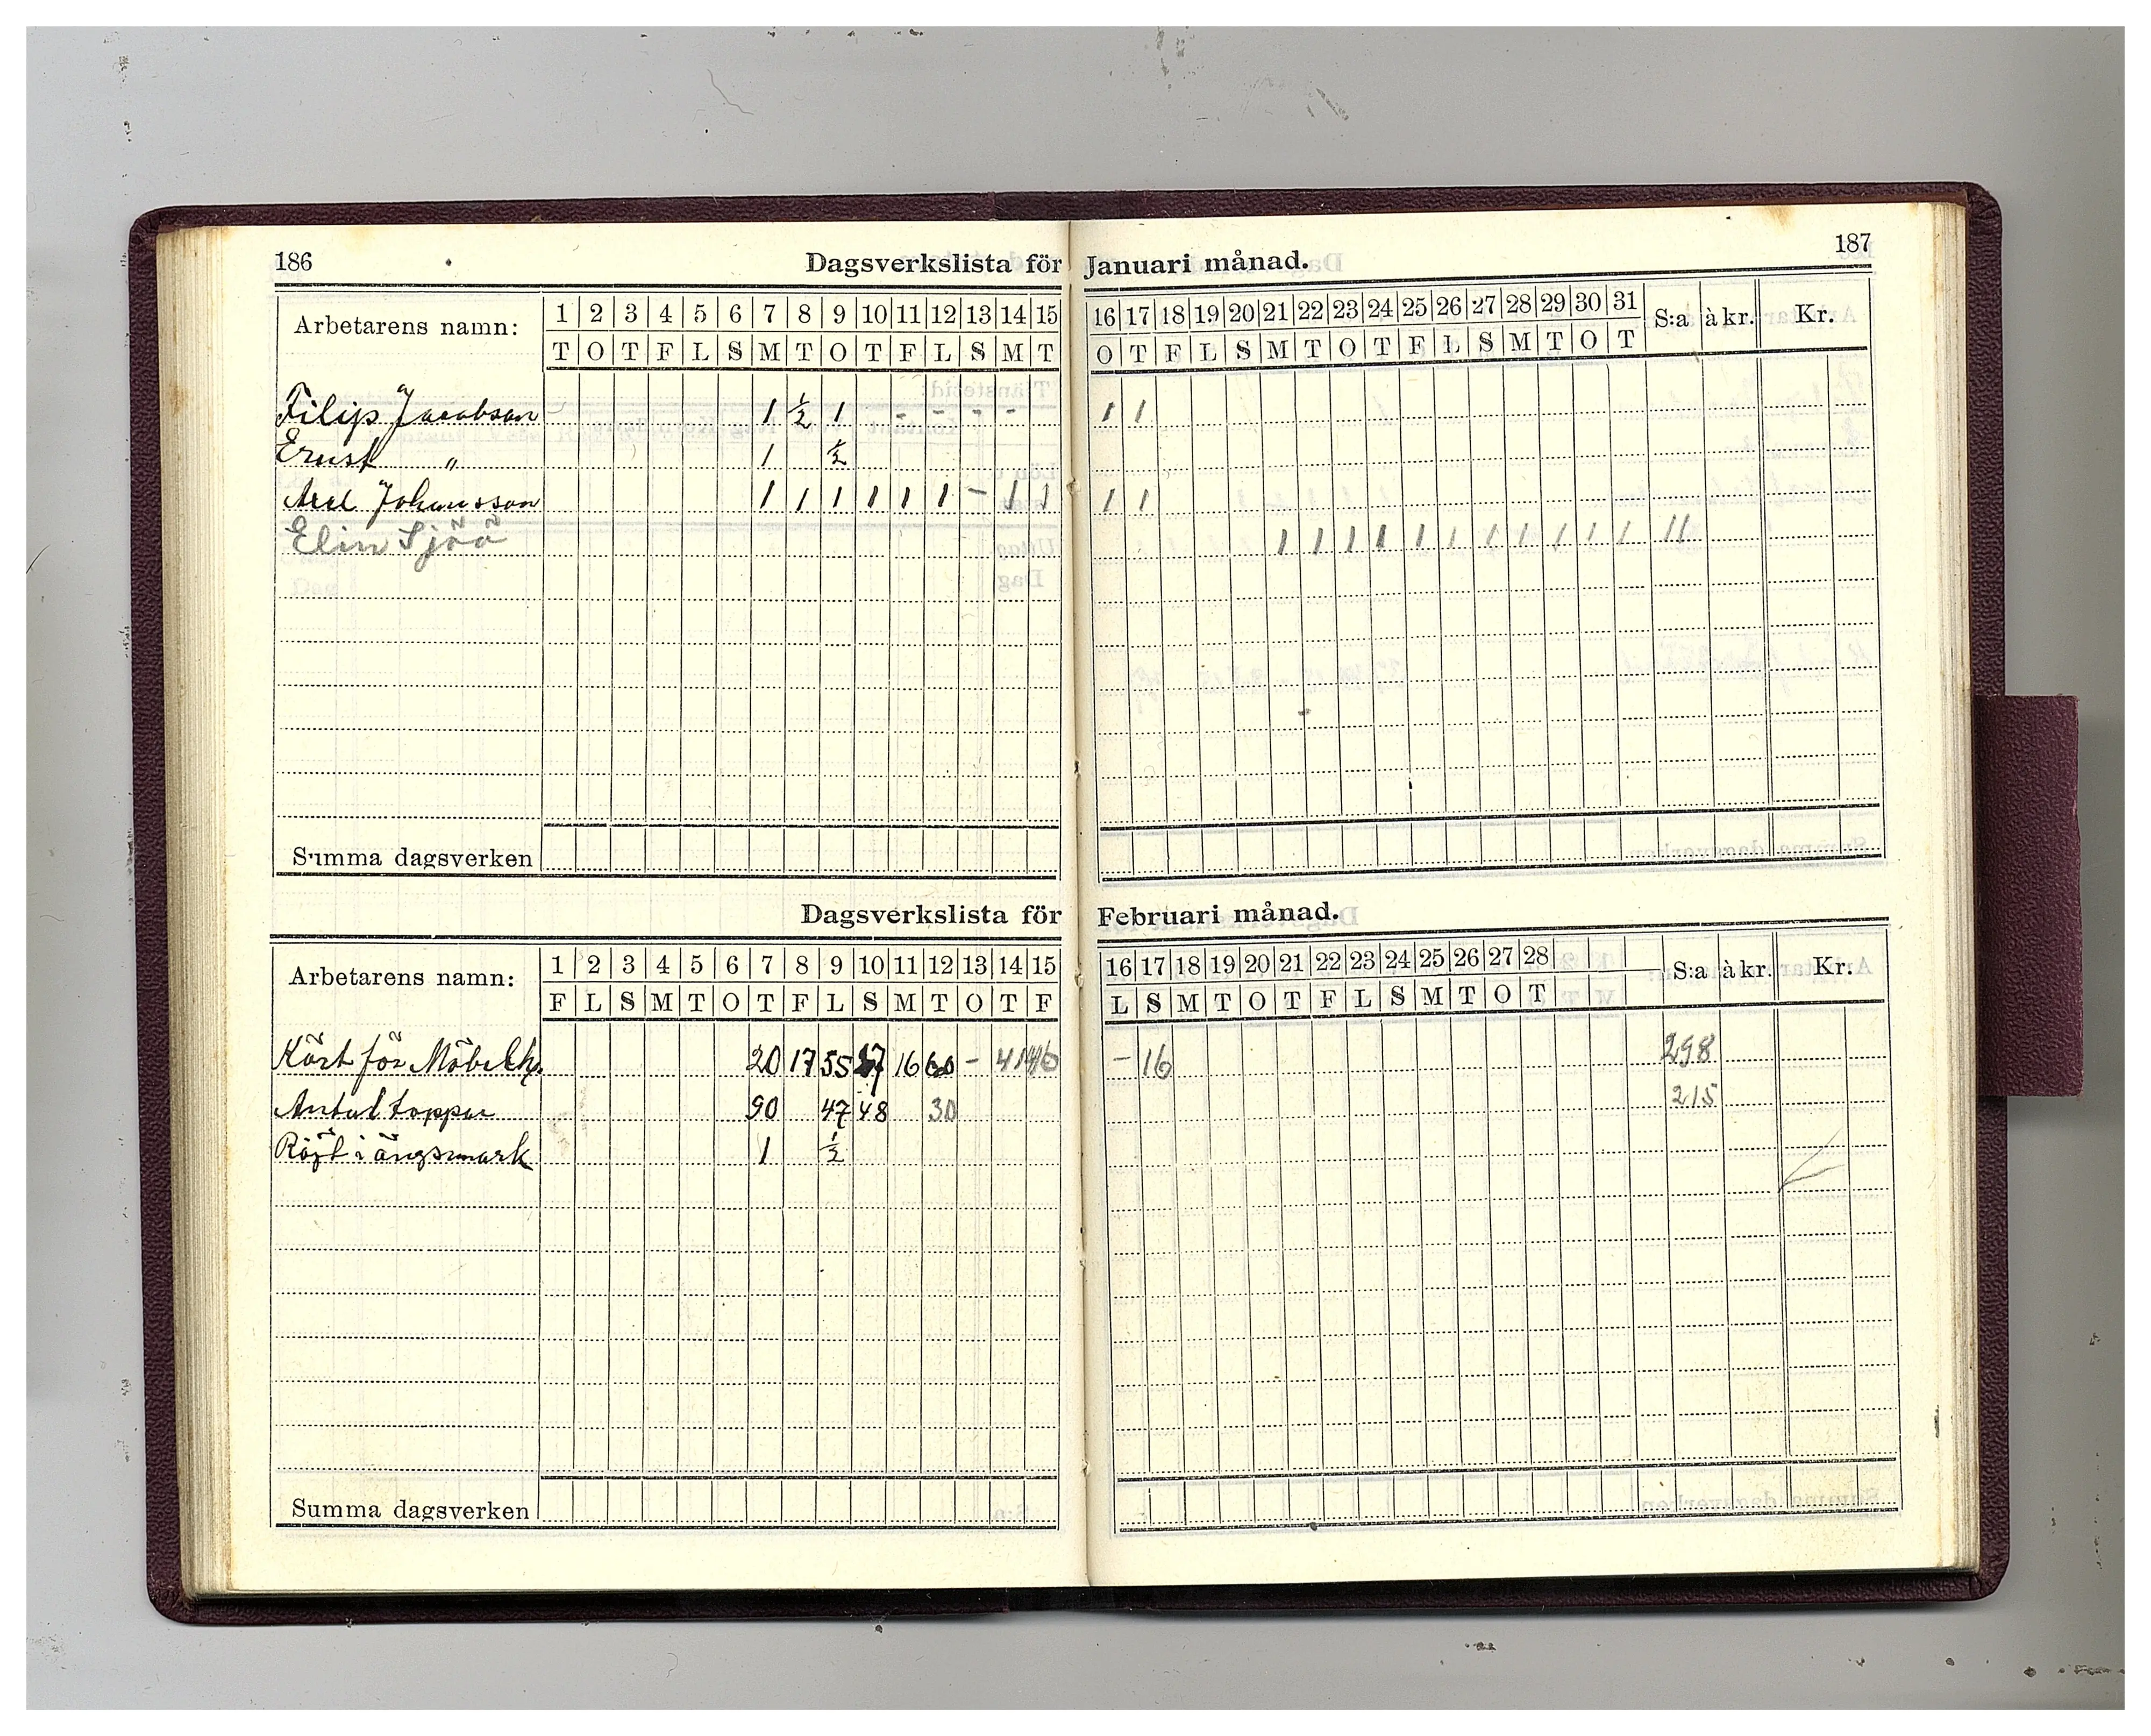 186 Dagsverkslista för Januari månad. 187
Arbetarens namn: 1 2 3 4 5 6 7 8 9 10 11 12 13 14 15 16 17 18 19 20 21 22 23 24 25 26 27 28 29 30 31 S:a à kr. Kr.
T O T F L S M T O T F L S M T O T F L S M T O T F L S M T O T
Filip Jacobson 1 ½ 1 - - - - 1 1
Ernst " 1 ½
Axel Johansson 1 1 1 1 1 1 - 1 1 1 1
Elin Sjöö 1 1 1 1 1 1 1 1 1 1 1 11
Summa dagsverken
Dagsverkslista för Februari månad.
Arbetarens namn: 1 2 3 4 5 6 7 8 9 10 11 12 13 14 15 16 17 18 19 20 21 22 23 24 25 26 27 28 S:a à kr. Kr.
F L S M T O T F L S M T O T F L S M T O T F L S M T O T
Kört för 20 17 55 16 60 - - 16 298
Antal toppar 90 47 48 30 215
Röjt i ängsmark 1 ½
Summa dagsverken